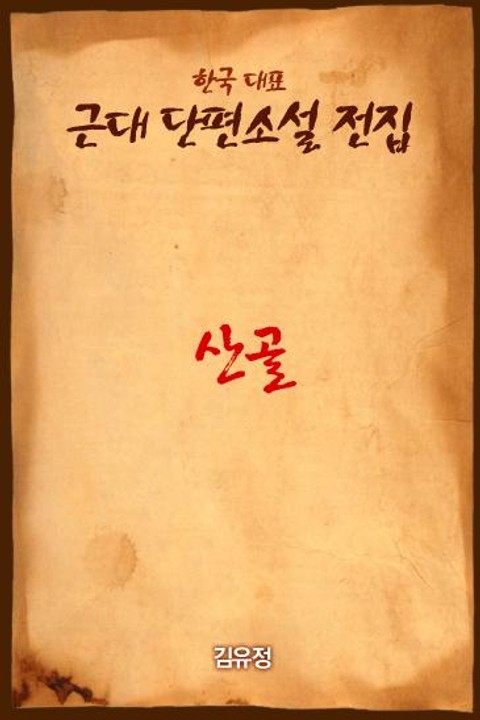 한국 대표
근대 단편소설 전집
산골
김유정